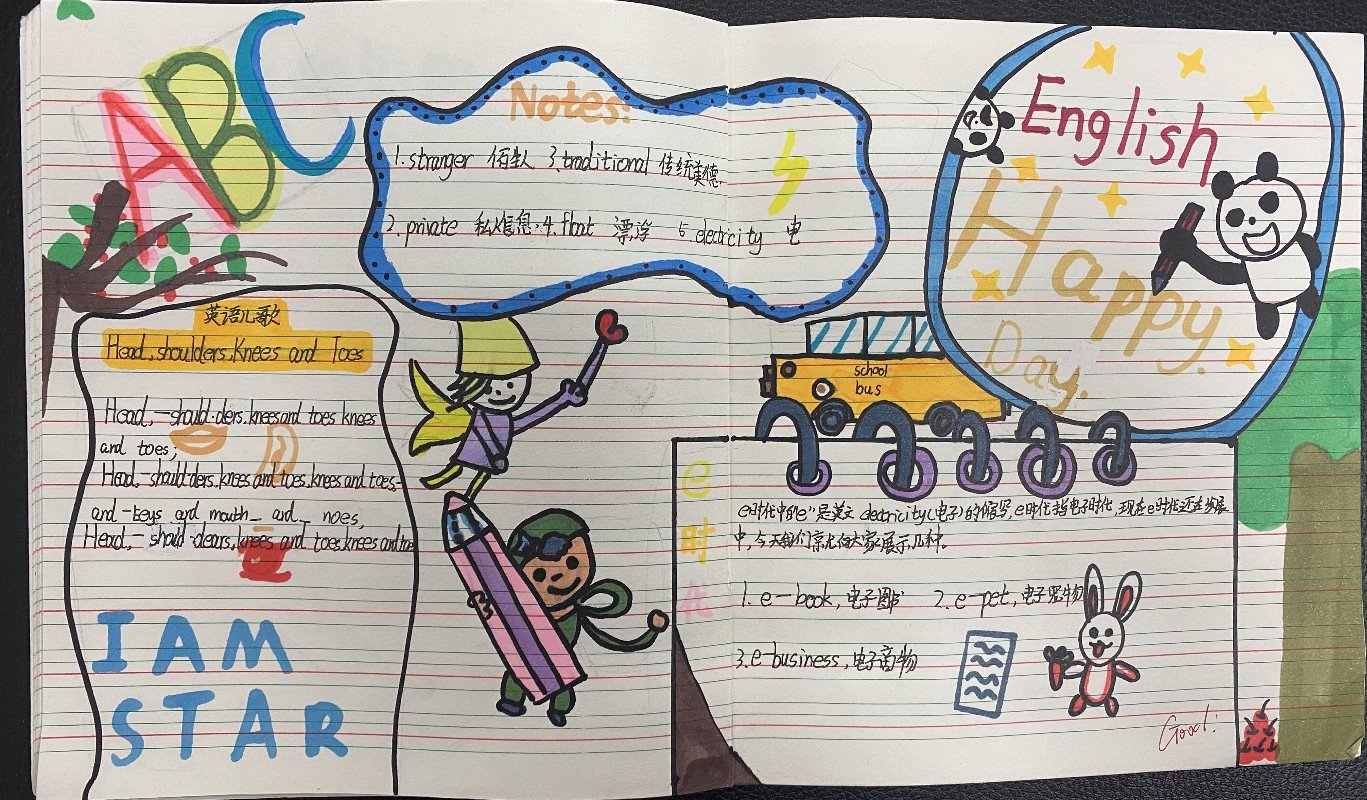 ABC
Notes:
1.stranger 陌生人 3.traditional 传统美德
2.private 私人信息.4.float 漂浮 5.electricity 电
English
Happy.
Day.
英语儿歌
Head,shoulders,Knees and Toes
Head,—should·ders.knees and toes knees
and toes;
Head,—should·ders.knees and toes.knees and toes-
and-Eeys and mouth_ and_ noes,
Head,—should-dears,knees and toes,knees and toe
I AM
STAR
school
bus
e时代
e时代中的"e"是英文 electricity(电子)的缩写,e时代指电子时代,现在e时代还在发展
中,今天我们就向大家展示几种。
1. e—book,电子图书 2. e-pet,电子宠物
3.e-business,电子商物
Good!